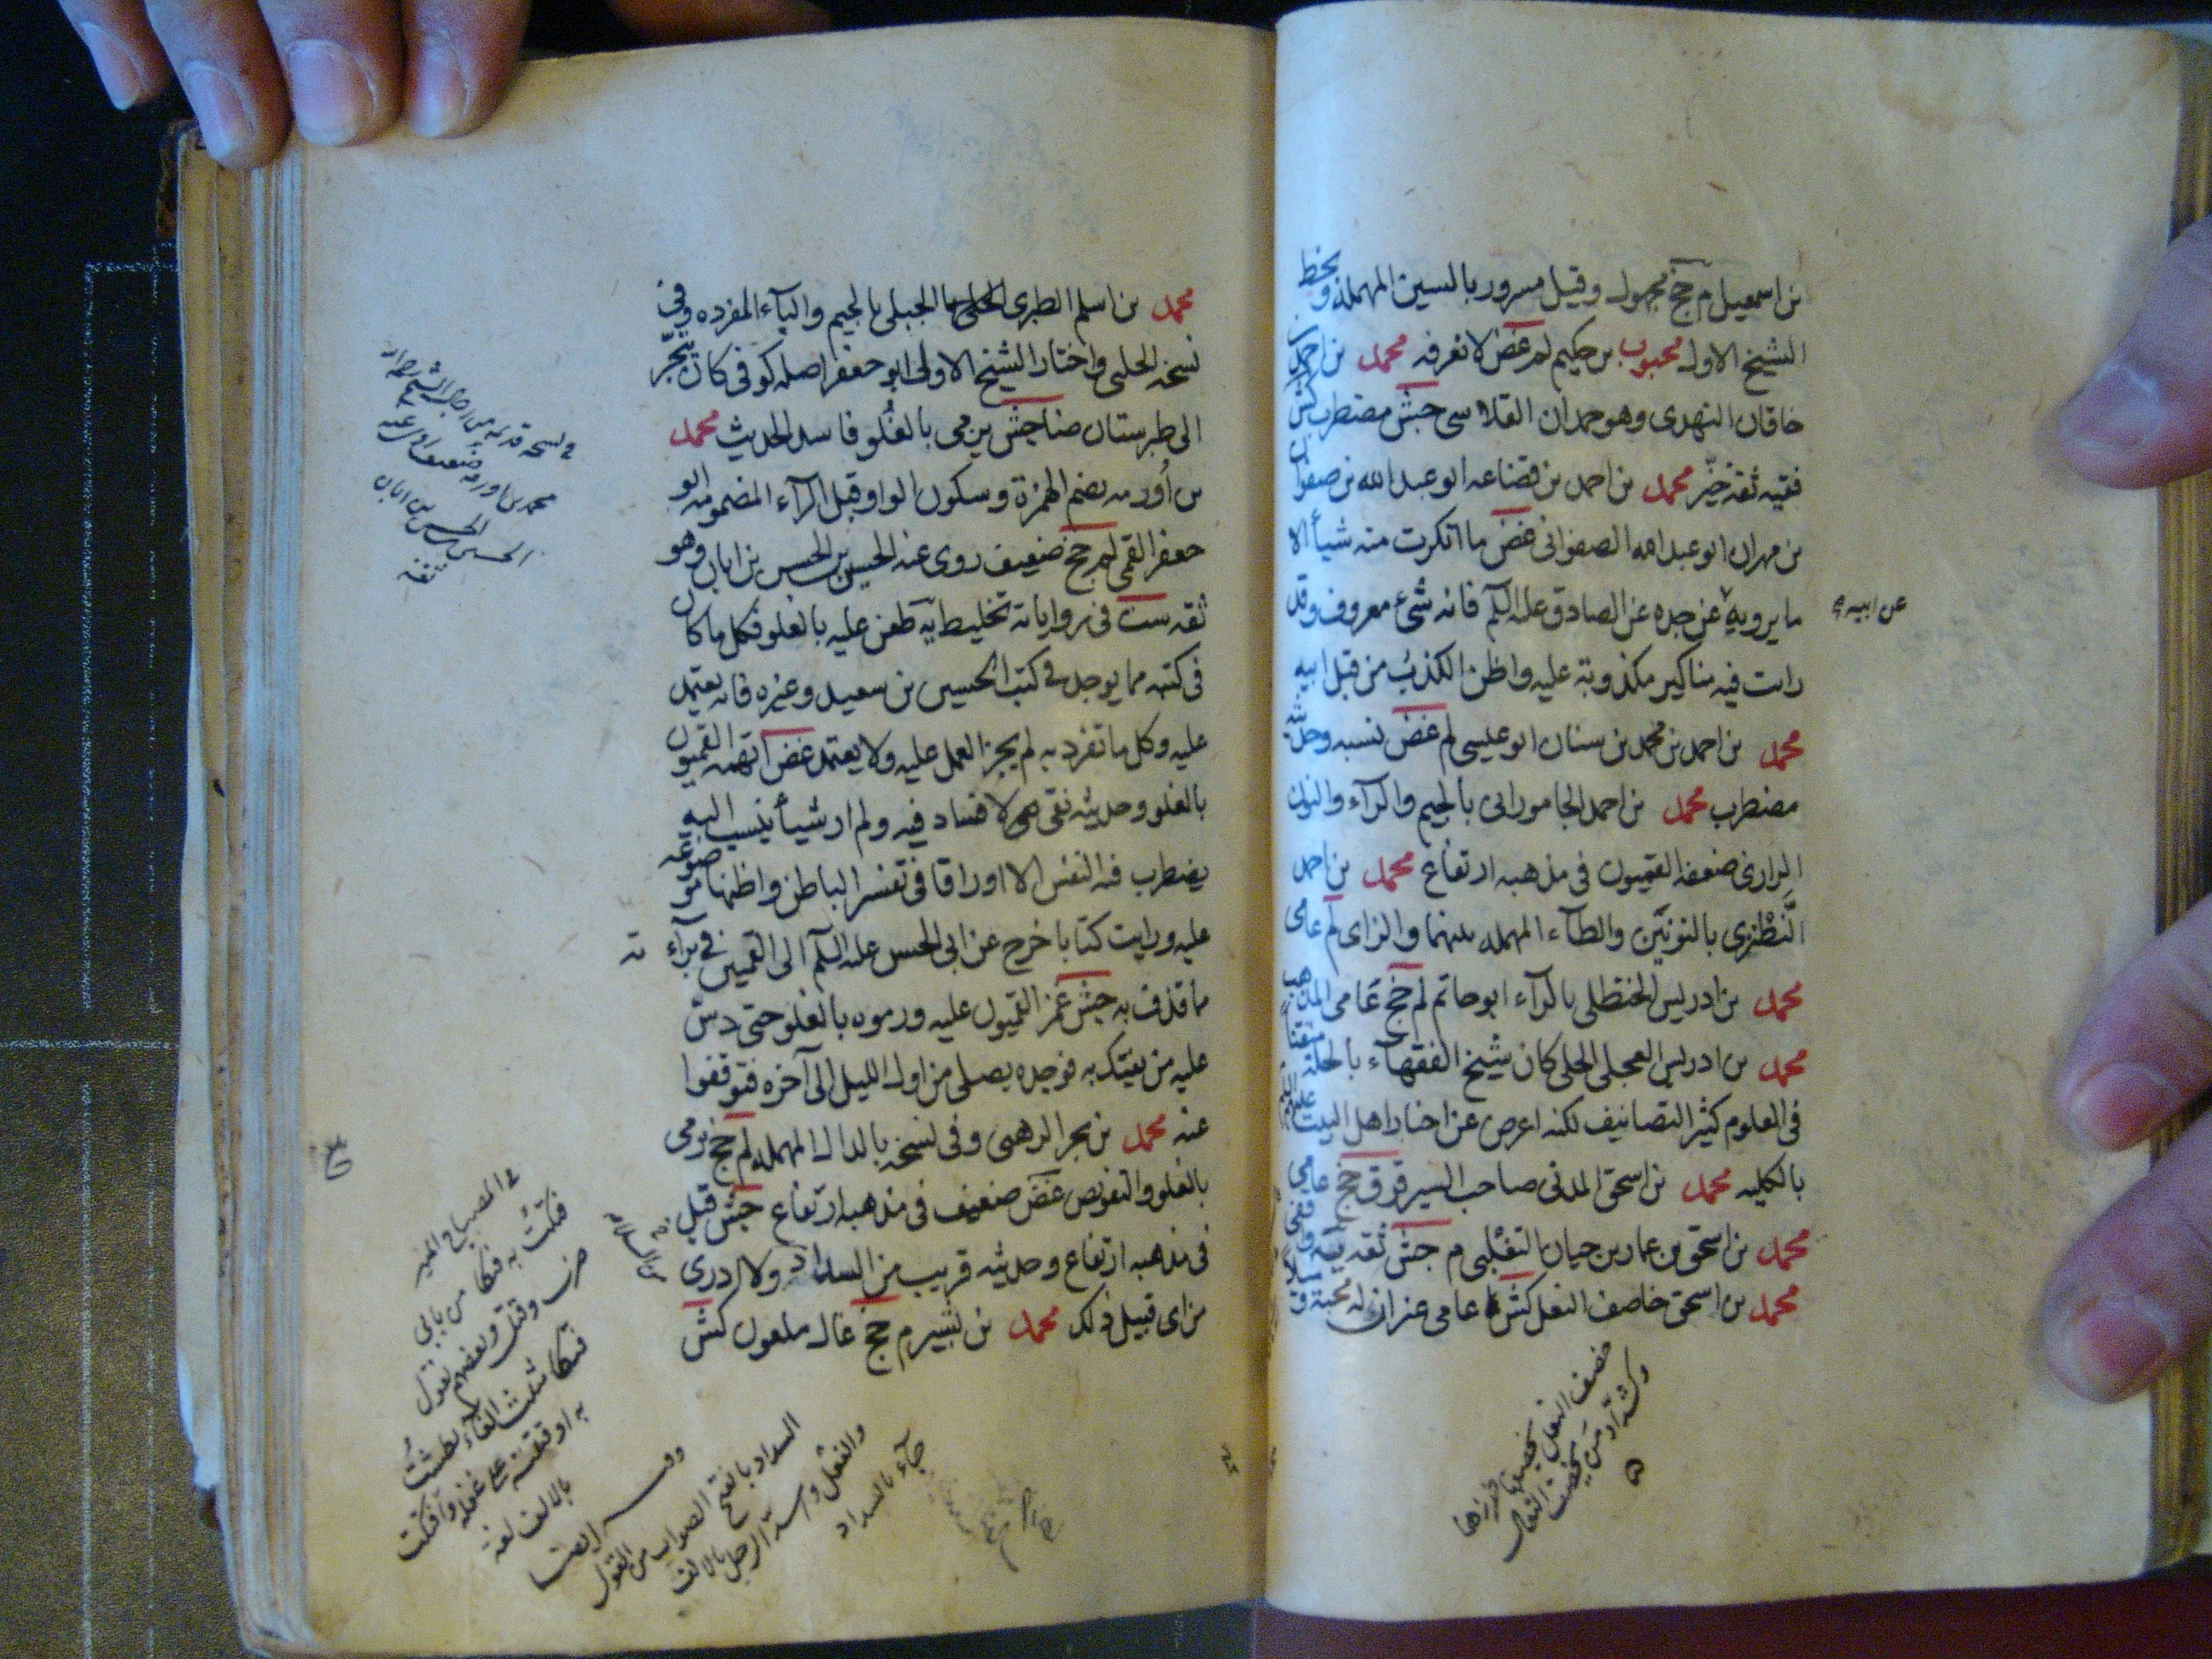 بن اسمعيل م جخ مجهول وقيل مسرور بالسين المهملة وبخط
الشيخ الاول محبوب بن حكيم لم غض لا نعرفه محمد بن احمد بن
خاقان النهدى وهو حمدان القلانسى جش مضطرب كش
فقيه ثقه خيّر محمد بن احمد بن قضاعه ابو عبد الله بن صفوان
بن مهران ابو عبد الله الصفوانى غض ما انكرت منه شيأ الا
ما يرويه عن جده عن الصادق عليه السلم فانه شىء معروف وقد
عن ابيه
رايت فيه مناكير مكذوبة عليه واظن الكذب من قبل ابيه
محمد بن احمد بن محمد بن سنان ابو عيسى لم غض نسبه وحديثه
مضطرب محمد بن احمد الجامورانى بالجيم والرآء والنون
الرازى ضعفه القميون فى مذهبه ارتفاع محمد بن احمد
النَّطْنزى بالنونين والطآء المهمله بينهما والزاى لم عامى
محمد بن ادريس الحنظلى بالرآء ابو حاتم لم جخ عامى المذهب
محمد بن ادريس العجلى الحلى كان شيخ الفقهآء بالحلة متقنا
فى العلوم كثير التصانيف لكنه اعرض عن اخبار اهل البيت عليهم السلم
بالكليه محمد بن اسحق المدنى صاحب السير قر ق جخ عامى
محمد بن اسحق بن عمار بن حيان التغلبى م جش ثقه فيه وقفى
محمد بن اسحق خاصف النعل كش عامى غير ان له محبة و ميلا
خصف النعل يخصفها خرزها
محمد بن اسلم الطبرى الجبلى بالجيم والبآء المفرده وفى
نسخه الحلبى واختار الشيخ الاول ابو جعفر اصله كوفى كان يتجّر
الى طبرستان ضا جش يرمى بالغلو فاسد الحديث محمد
بن اُورمه بضم الهمزة وسكون الواو وقبل الرآء المضمومه ابو
جعفر القمى لم جخ ضعيف روى عنه الحسين بن الحسن بن ابان وهو
ثقه ست فى رواياته تخليط يه طعن عليه بالغلو فكل ما كان
فى كتبه مما يوجد فى كتب الحسين بن سعيد وغيره فانه يعتمد
عليه وكل ما تفرد به لم يجز العمل عليه ولا يعتمد غض اتهمه القميون
بالغلو وحديثه نقى لا فساد فيه ولم ار شيأ ينسب اليه
يضطرب فيه النفس الا اوراقا فى تفسير الباطن واظنها موضوعه
عليه ورايت كتابا خرج عن ابى الحسن عليه السلم الى القميين فى برآءته
ما قذف به جش غمز القميون عليه ورموه بالغلو حتى دسّ
عليه من يفتك به فوجده يصلى من اول الليل الى آخره فتوقفوا
عنه محمد بن بحر الرهنى وفى نسخه بالدال المهمله لم جخ يرمى
بالغلو والتفويض غض ضعيف فى مذهبه ارتفاع جش قيل
فى مذهبه ارتفاع وحديثه قريب من السداد ولا ادرى
من اى قبيل ذلك محمد بن بشير م جخ غال ملعون كش
محمد بن اورمه ضعيف روى عنه
الحسين بن الحسن بن ابان
ثقه
فى المصباح المنير
فتكت به فتكا من بابى
ضرب وقتل وبعضهم يقول
فتكا مثلث الفاء بطشت
به او قتلته على غفله وافتكت
بالالف لغة
السداد بالفتح الصواب من القول
والفعل واسدّ الرجل بالالف
جآء بالسداد